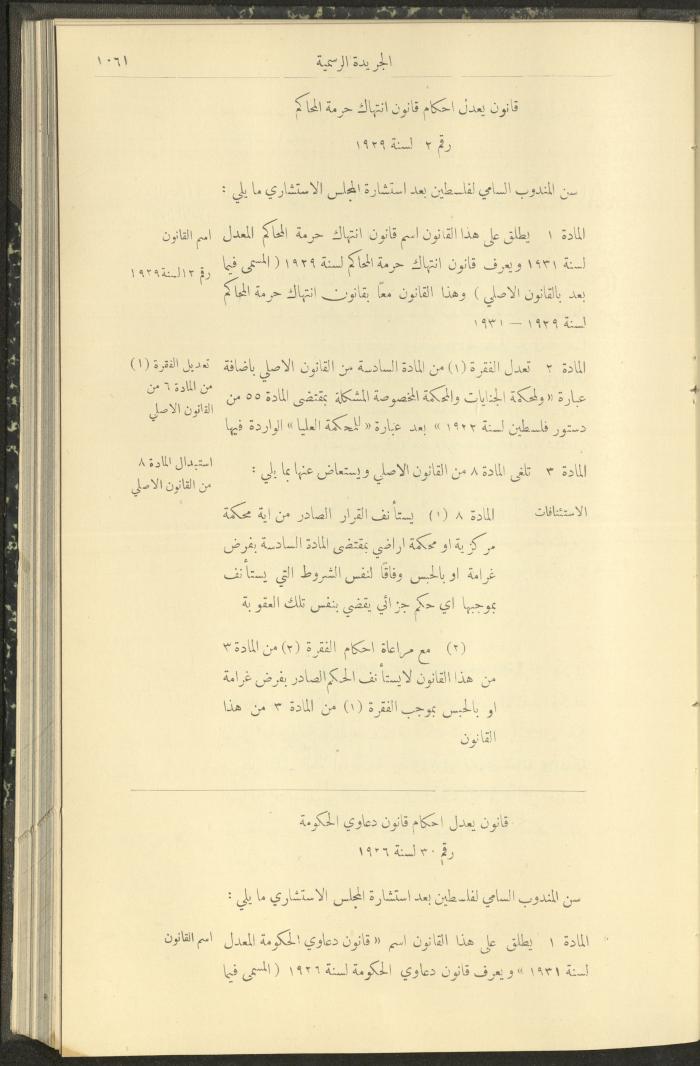 الجريدة الرسمية
١٠٦١
قانون يعدل احكام قانون انتهاك حرمة المحاكم
رقم ٢ لسنة ١٩٢٩
سن المندوب السامي لفلسطين بعد استشارة المجلس الاستشاري ما يلي :
المادة ١ يطلق على هذا القانون اسم قانون انتهاك حرمة المحاكم المعدل
اسم القانون
لسنة ١٩٣١ ويعرف قانون انتهاك حرمة المحاكم لسنة ١٩٢٩ ( المسمى فيما
رقم ٢ لسنة ١٩٢٩
بعد بالقانون الاصلي ) وهذا القانون معًا بقانون انتهاك حرمة المحاكم
لسنة ١٩٢٩ – ١٩٣١
المادة ٢ تعدل الفقرة (١) من المادة السادسة من القانون الاصلي باضافة
تعديل الفقرة (١)
عبارة « ولمحكمة الجنايات والمحكمة المخصوصة المشكلة بمقتضى المادة ٥٥ من
من المادة ٦ من
دستور فلسطين لسنة ١٩٢٢ » بعد عبارة « للمحكمة العليا » الواردة فيها
القانون الاصلي
المادة ٣ تلغى المادة ٨ من القانون الاصلي ويستعاض عنها بما يلي :
استبدال المادة ٨
من القانون الاصلي
الاستئنافات
المادة ٨ (١) يستأنف القرار الصادر من اية محكمة
مركزية او محكمة اراضي بمقتضى المادة السادسة بفرض
غرامة او بالحبس وفاقًا لنفس الشروط التي يستأنف
بموجبها اي حكم جزائي يقضي بنفس تلك العقوبة
(٢) مع مراعاة احكام الفقرة (٢) من المادة ٣
من هذا القانون لا يستأنف الحكم الصادر بفرض غرامة
او بالحبس بموجب الفقرة (١) من المادة ٣ من هذا
القانون
قانون يعدل احكام قانون دعاوي الحكومة
رقم ٣٠ لسنة ١٩٢٦
سن المندوب السامي لفلسطين بعد استشارة المجلس الاستشاري ما يلي :
المادة ١ يطلق على هذا القانون اسم « قانون دعاوي الحكومة المعدل
اسم القانون
لسنة ١٩٣١ » ويعرف قانون دعاوي الحكومة لسنة ١٩٢٦ ( المسمى فيما